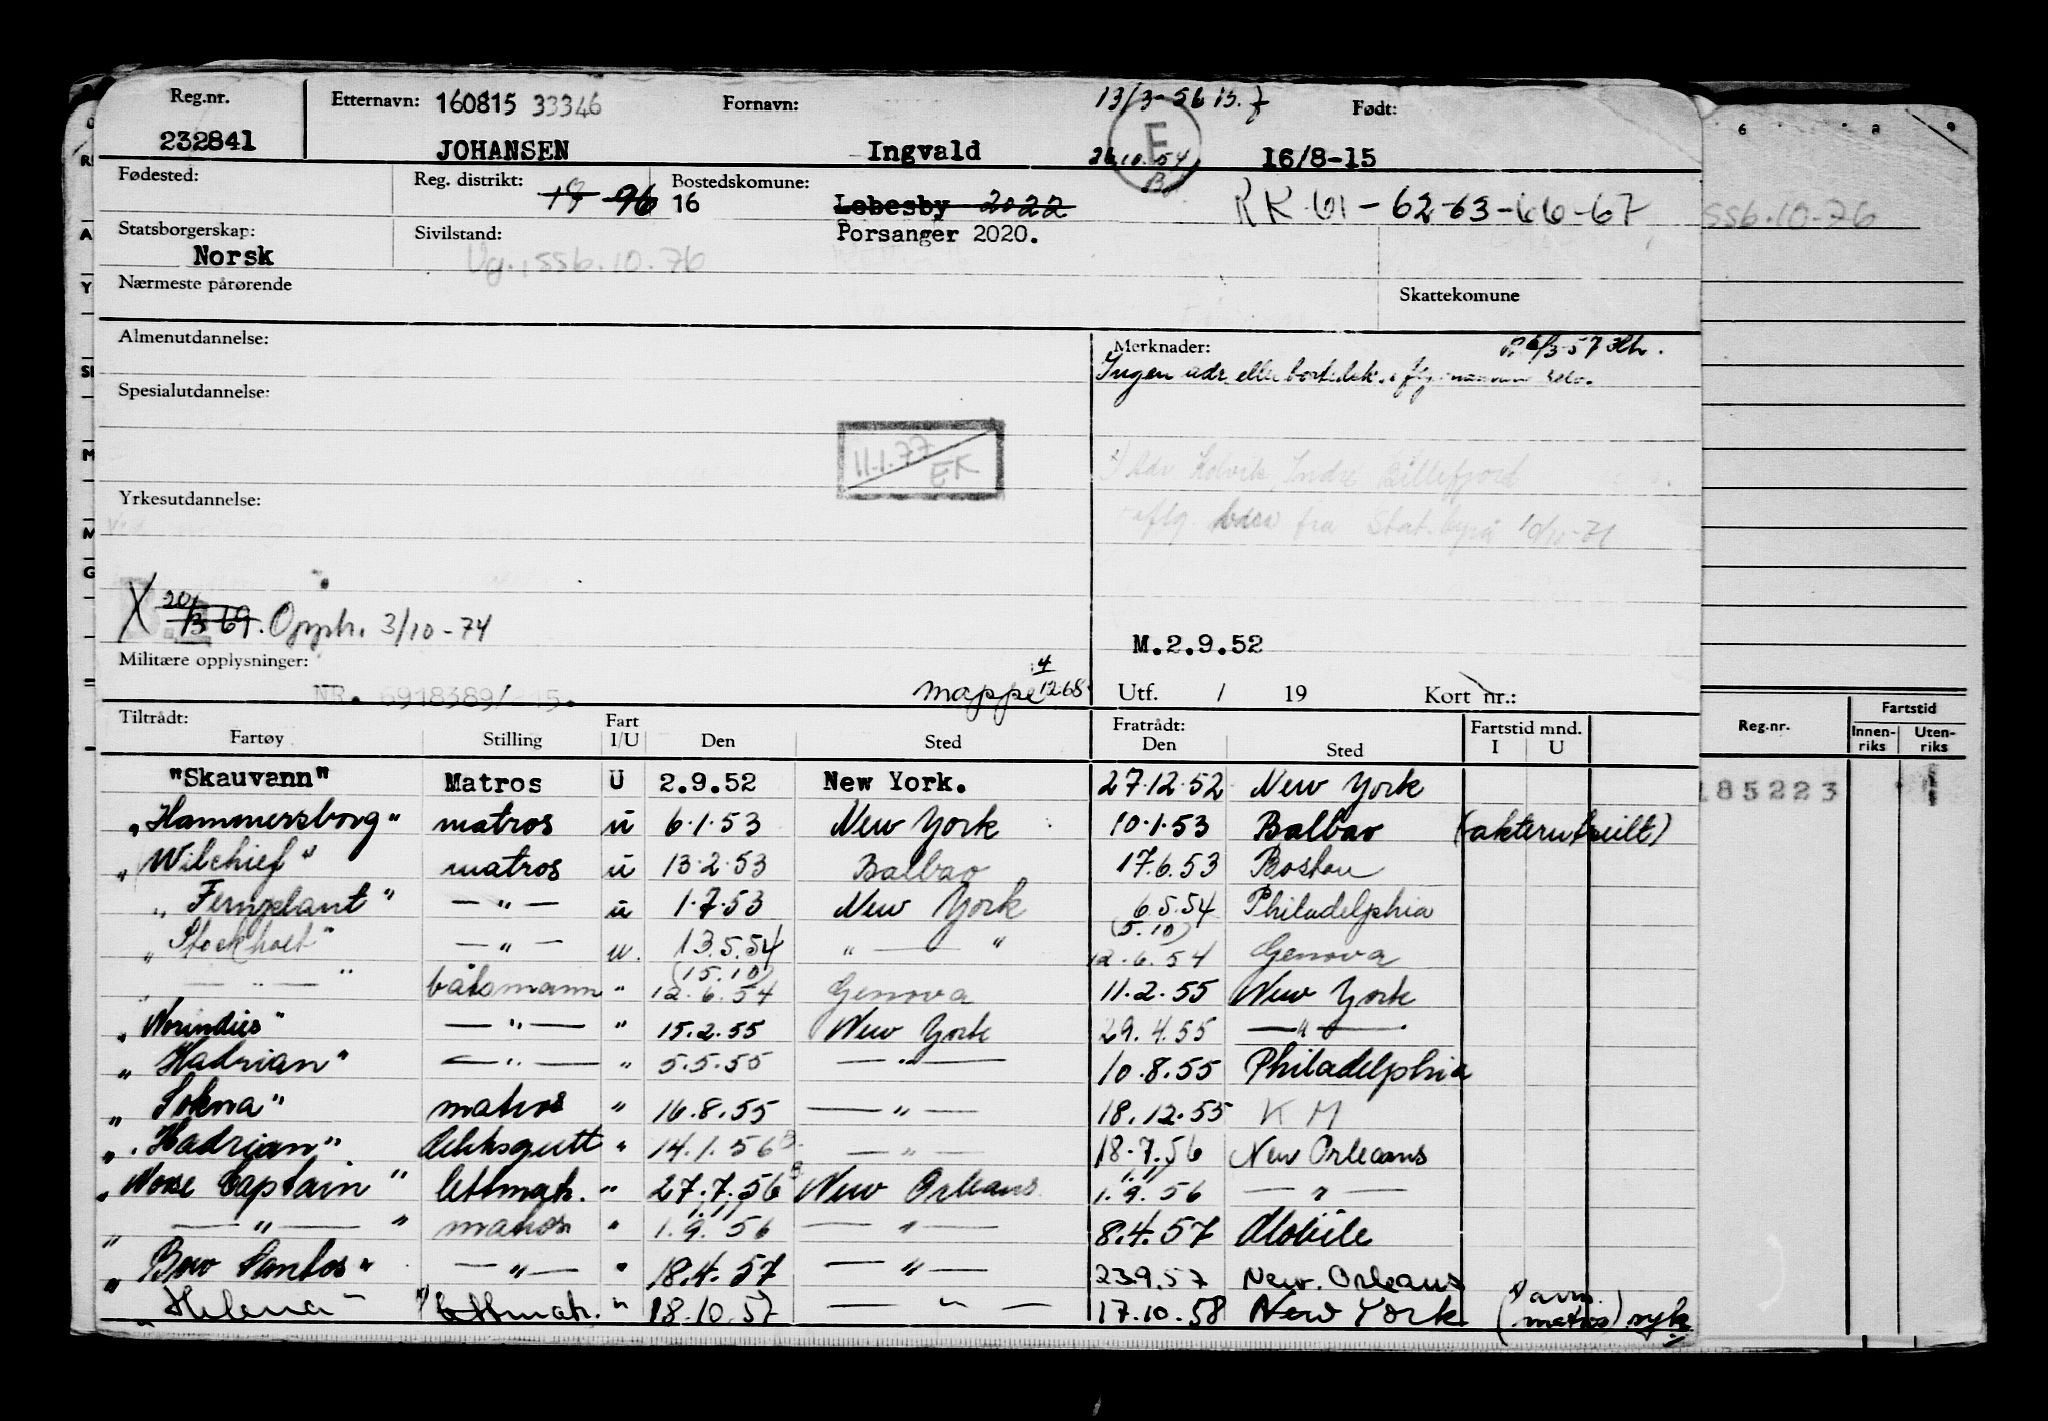 Reg.nr. Etternavn: 160815 33346 Fornavn: 13/3-56 Født:
232841 JOHANSEN Ingvald E 16/8-15
Fødested: Reg. distrikt: 96 Bostedskomune: 16 Lebesby 2022 RK-61-62-63-66-67
Statsborgerskap: Norsk Sivilstand: Porsanger 2020.
Vg., ssb. 10.76
ssb. 10-76
Nærmeste pårørende Skattekomune
Almenutdannelse: Merknader:
Ingen adr.
Spesialutdannelse:
11.1.77 EK
Adv Kolvik, Indre Billefjord
Yrkesutdannelse:
fra Stat. byrå
X 20/3 69. Opph. 3/10-74
M.2.9.52
Militære opplysninger: mappe 4/12 68 Utf. / 19 Kort nr.:
NR. 6918389/
Tiltrådt: Fartøy Stilling Fart I/U Den Sted Fratrådt: Den Sted Fartstid mnd. I U
Reg.nr. Fartstid Innen-riks Uten-riks
185223
"Skauvann" Matros U 2.9.52 New York. 27.12.52 New York
"Hammersborg" matros u 6.1.53 New York 10.1.53 Balbao (akterutseilt)
"Wilchief" matros u 13.2.53 Balbao 17.6.53 Boston
"Fernplant" — " — u 1.7.53 New York 6.5.54 Philadelphia
(5.10)
"Stockholt" — " — u. 13.5.54 " — " 12.6.54 Genova
(15.10)
— " — " båtsmann " 12.6.54 Genova 11.2.55 New York
"Norindies" — " — " 15.2.55 New York 29.4.55 — " —
"Hadrian" — " — " 5.5.55 — " — 10.8.55 Philadelphia
"Sokna" matros " 16.8.55 — " — 18.12.55 K M
"Hadrian" dekksgutt " 14.1.56 — " — 18.7.56 New Orleans
"Norse Captain" lettmatr. " 27.7.56 New Orleans 1.9.56 — " —
" — " — " matros " 1.9.56 — " — 8.4.57 Mobile
"Bow Santos" — " — " 18.4.57 — " — 23.9.57 New. Orleans
"Helena" lettmatr. " 18.10.57 — " — 17.10.58 New York (avm. matros) syk